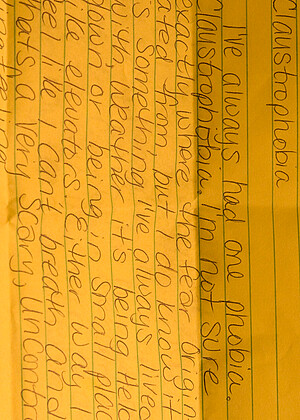 Claustrophobia
I've always had one phobia.
Claustrophobia. I'm not sure
exactly where the fear origin
ated from but I do know
is something I've always lived
with weather it's being Held
down or being n small plac
like elevators Either way I
feel like I can't breath and
thats a very scary, uncomfo